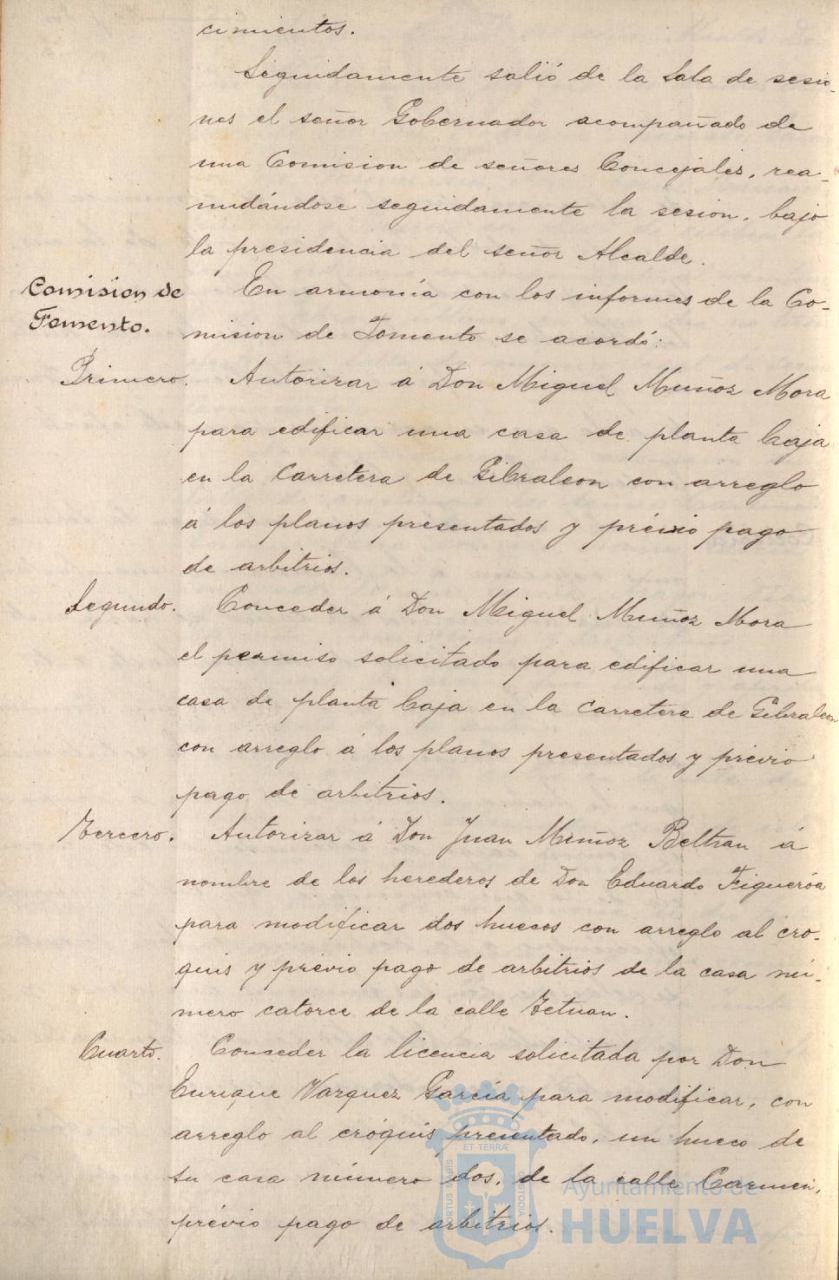 cimientos.
Seguidamente salió de la Sala de sesio-
nes el señor Gobernador acompañado de
una Comision de señores Concejales, rea-
nudándose seguidamente la sesion, bajo
la presidencia del señor Alcalde.
Comision de
Fomento.
En armonía con los informes de la Co-
mision de Fomento se acordó:
Primero. Autorizar á Don Miguel Muñoz Mora
para edificar una casa de planta baja
en la Carretera de Gibraleon con arreglo
á los planos presentados y prévio pago
de arbitrios.
Segundo. Conceder á Don Miguel Muñoz Mora
el permiso solicitado para edificar una
casa de planta baja en la Carretera de Gibraleon
con arreglo á los planos presentados y prévio
pago de arbitrios.
Tercero. Autorizar á Don Juan Muñoz Beltran á
nombre de los herederos de Don Eduardo Figueróa
para modificar dos huecos con arreglo al cro-
quis y prévio pago de arbitrios de la casa nú-
mero catorce de la calle Tetuan.
Cuarto. Conceder la licencia solicitada por Don
Enrique Vazquez García para modificar, con
arreglo al cróquis presentado, un hueco de
su casa número dos, de la calle Carmen,
prévio pago de arbitrios.
PORTUS MARIS ET TERRÆ CUSTODIA
Ayuntamiento de
HUELVA